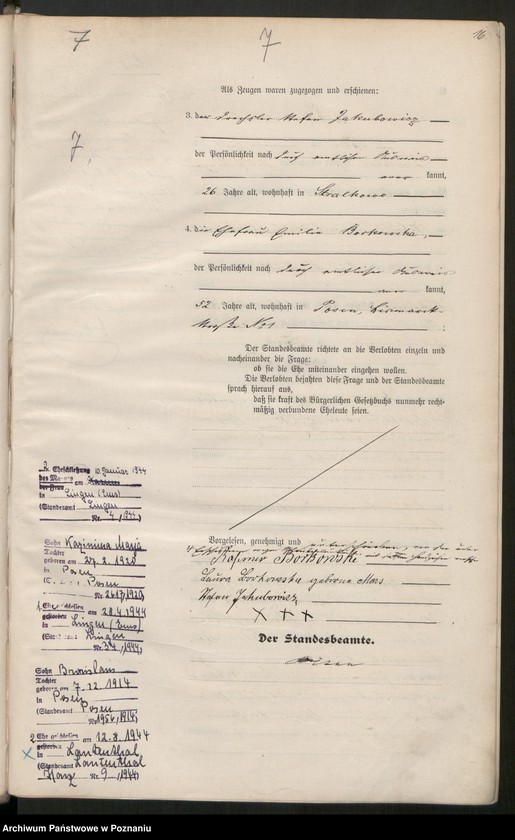 7
7
16
7,
Als Zeugen waren zugezogen und erschienen:
3. der Drechsler Stefan Jakubowicz
der Persönlichkeit nach durch
kannt,
26 Jahre alt, wohnhaft in Stralkowo
4. die Ehefrau Emilia Borkowska,
der Persönlichkeit nach durch
kannt,
52 Jahre alt, wohnhaft in Posen, Bismarck-
straße No 1
Der Standesbeamte richtete an die Verlobten einzeln und
nacheinander die Frage:
ob sie die Ehe miteinander eingehen wollen.
Die Verlobten bejahten diese Frage und der Standesbeamte
sprach hierauf aus,
daß sie kraft des Bürgerlichen Gesetzbuchs nunmehr recht-
mäßig verbundene Eheleute seien.
Vorgelesen, genehmigt und
Borkowski
Laura Borkowska geborne Mars
Stefan Jakubowicz
+++
Der Standesbeamte.
2. Eheschließung 10. Januar 1944
des Mannes am
der Frau
in Lingen (Ems)
(Standesamt Lingen
Nr. 4/1944)
Sohn Kazimira Marja
Tochter
geboren am 27. 2. 1920
in Posen
Posen
Nr. 2617/1920)
1. Ehe geschlossen am 20.4.1944
gestorben
in Lingen (Ems)
Lingen
Nr. 34/1944)
Sohn Bronislaus
Tochter
geboren am 7.12.1914
in Posen
(Standesamt Posen
Nr. 1956/1914)
2 Ehe geschlossen am 12.8.1944
gestorben
x in Lautenthal
(Standesamt Lautenthal
Harz Nr. 9/1944)
Archiwum Państwowe w Poznaniu